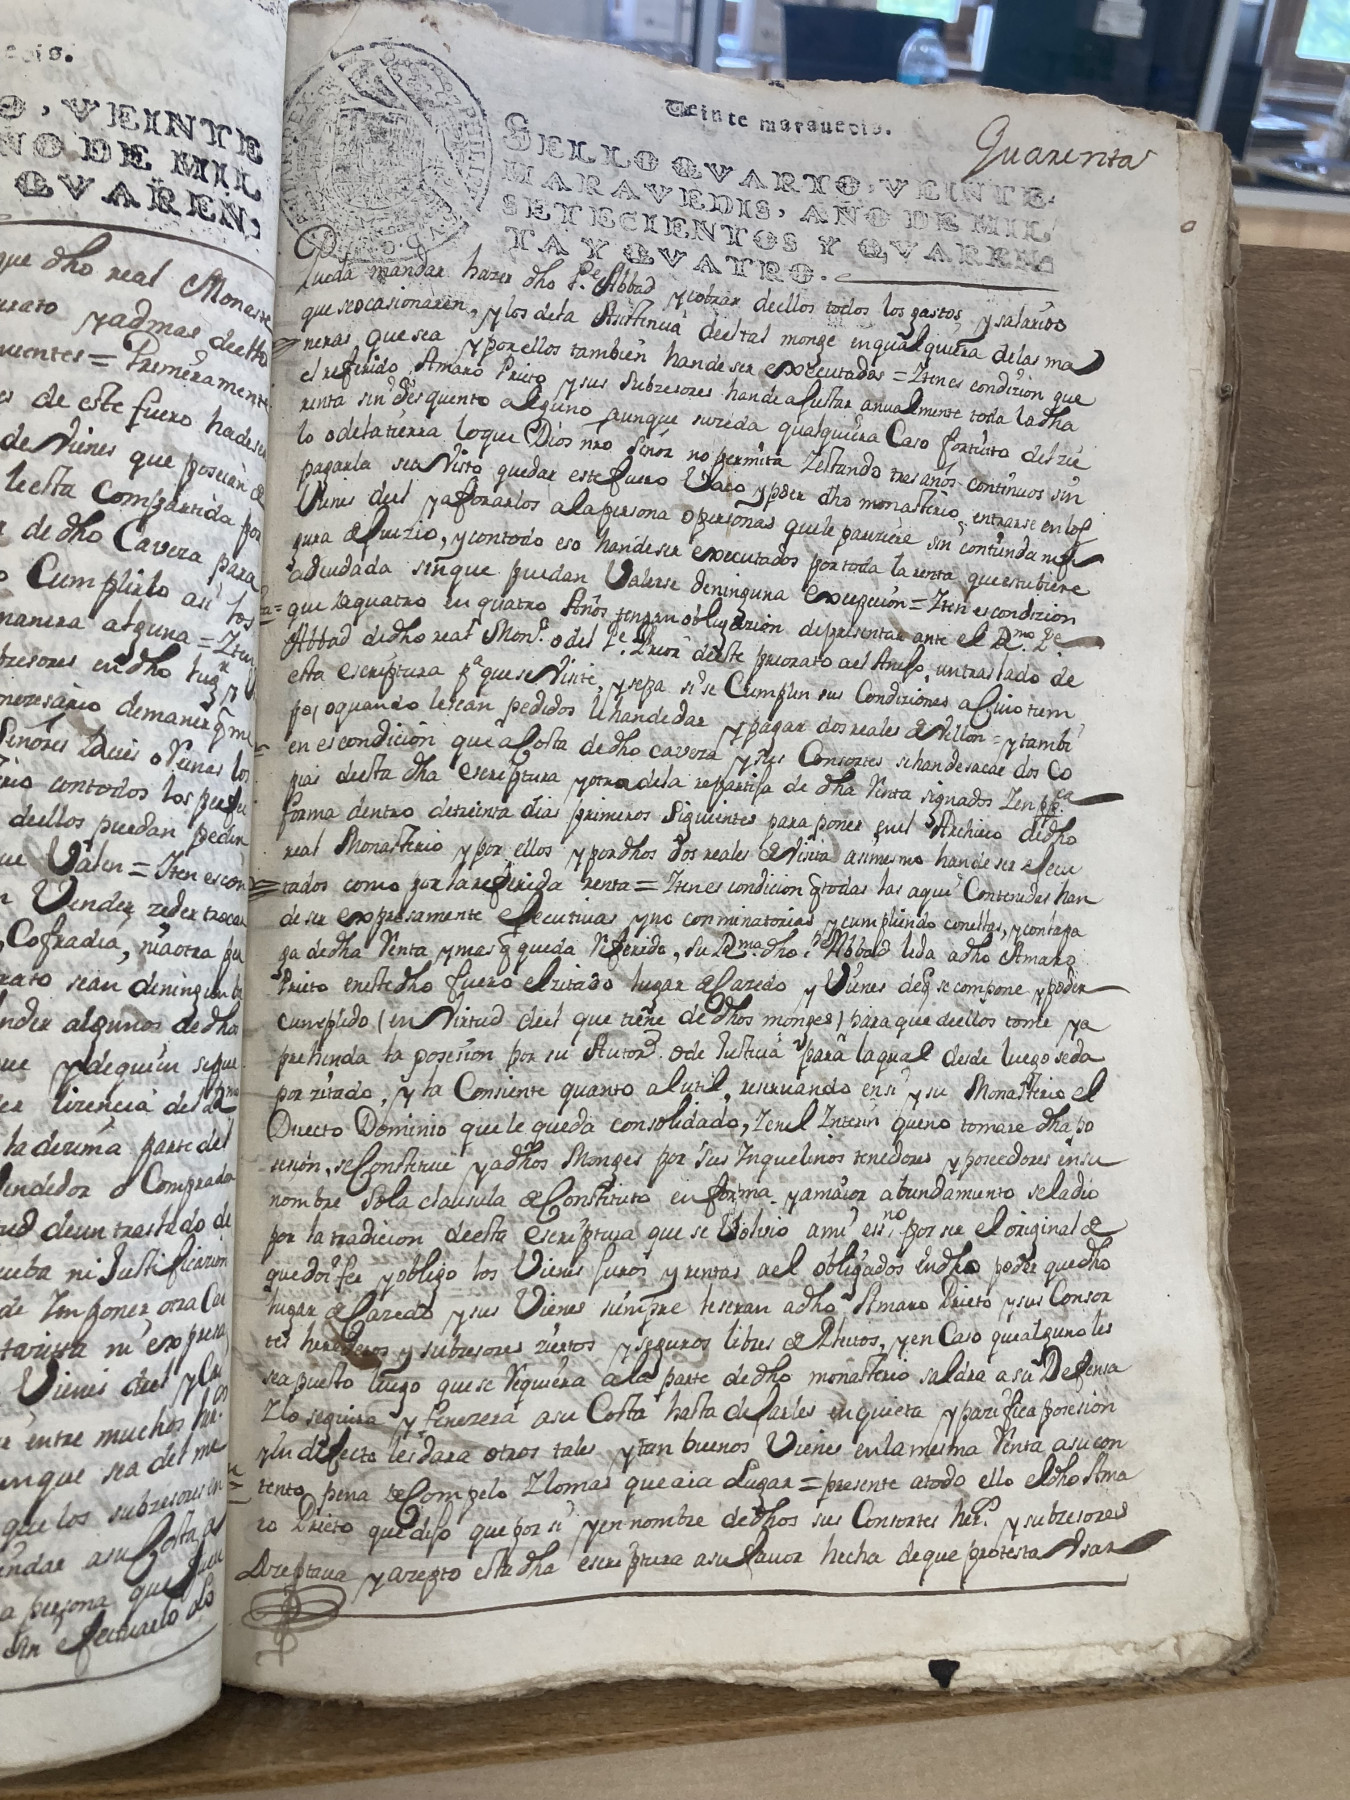 ecis.
O, VEINTE
ÑO DE MIL
QVAREN,
que dho real Monaste
urato yadmas deello
uientes = Primeramente
es de este fuero hadeser
de Vienes que poseien
leesta Compartida por
r de dho Caveza para
o Cumplirlo asi los
manera alguna = Iten
bresores endho lugr
nezesario demanera q me
Señores Reies o Reinas los
contodos los
deellos puedan pedir
ue Valen = Iten escon
n Vender, zeder trocar
, Cofradia, niaotra per
rato sean deningun
nder algunos dedha
ue ydequien sepue
er lizencia del
la dezima parte del
Vendedor o Comprador
tud deun traslado de
ueba ni Justificazion
de Imponer otra Car
tazita ni expresa
Vienes del y
r entre muchos
unque sea del me
que los subzesores
undar asu Costa
a persona que
sin efectuarlo
Veinte marauedis.
Quarenta
SELLO QVARTO, VEINTE
MARAVEDIS, AÑO DE MIL
SETECIENTOS Y QVAREN
TA Y QVATRO.
Pueda mandar hazer dho Pe. Abbad ycobrar deellos todos los gastos, ysalarios
queseocasionaren, ylos dela Asistencia deeltal monge enqualquiera delas ma
neras que sea yporellos tambien handeser executados = Iten es condizion que
el referido Amaro Prieto ysus Subzesores hande aJustar anualmente toda ladha
renta sin desquento alguno aunque suzeda qualquiera Caso fortuito del zie
lo odelatierra loque Dios nro Señor no permita Iestando tres años continuos sin
pagarla sea Visto quedar este fuero Vaco ypoder dho monasterio entrarse enlos
Vienes del yaforarlos alapersona opersonas quele pareziere sin contienda ni fi
gura de Juizio, ycontodo eso handeser executados portoda la renta queestubiere
adeudada sinque puedan Valerse deninguna excepcion = Iten escondizion
que dequatro en quatro Años tengan obligazion depresentar ante el Rmo. Pe.
Abbad dedho real Monro. odel Pe. Prior deeste priorato untraslado de
esta escriptura pa queseVisite, ysepa sise Cumplen sus Condiziones aCuio tiem
po, oquando lesean pedidos lehandedar ypagar dos reales deVillon = ytambi
en escondicion que aCosta dedho caveza ysus Consortes sehandesacar dos Co
pias deesta dha escriptura yotra dela repartija de dha Renta signados Ien ppca
forma dentro detreinta dias primeros siguientes para poner enel Archivo dedho
real Monasterio ypor ellos ypordhos dos reales deVisita asimesmo handeser eJecu
tados como por lareferida renta = Iten es condicion q todas las aqui Contenidas han
deser expresamente eJecutivas yno conminatorias ycumpliendo conellas, yconlapa
ga dedha Renta ymas q queda Referido, Su Rma. dho Pe. Abbad leda adho Amaro
Prieto enestedho fuero elzitado lugar deCaredo y Vienes deq secompone ypoder
cumplido (en Virtud deel que tiene dedhos monges) para que deellos tome ya
prehenda la posesion por su Autord. ode Justicia para laqual desde luego seda
por zitado, yla Consiente quanto alutil, reservando ensi ysu Monasterio el
Directo Dominio quele queda consolidado, Ienel Interin queno tomare dhapo
sesion, seConstituie yadhos Monges por sus Inquelinos tenedores yposeedores ensu
nombre sola clausula deConstituto en forma. yamaior abundamento seladio
por la tradicion deesta escriptura que se Volvio ami essno por ser el original de
quedoi fee yobligo los Vienes Juros yrentas ael obligados endho poder quedho
lugar deCaredo ysus Vienes siempre leseran adho Amaro Prieto ysus Consor
tes herederos y subzesores ziertos yseguros libres de Pleitos, yen Caso quealguno les
sea puesto luego quese Requiera ala parte dedho monasterio saldra asu Defensa
Ilo seguira yfenezera asu Costa hasta deJarles enquieta ypazifica posesion
yen defecto lesdara otros tales ytan buenos Vienes enlamesma Renta asucon
tento pena deCompelo Ilomas queaia Lugar = presente atodo ello eldho Ama
ro Prieto quediJo que por si yen nombre dedhos sus Consortes hers. ysubzesores
Azeptava yazepto estadha escriptura asu favor hecha deque protesta Vsar